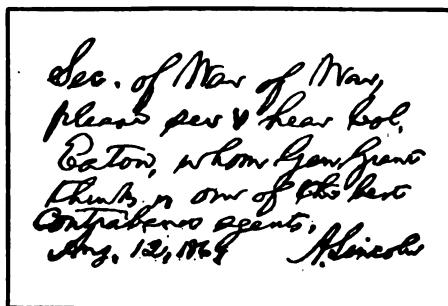 Sec. of War of War,
please see & hear Col.
Eaton, whom Gen Grant
thinks is one of the best
contraband agents.
Aug. 12, 1864 A. Lincoln